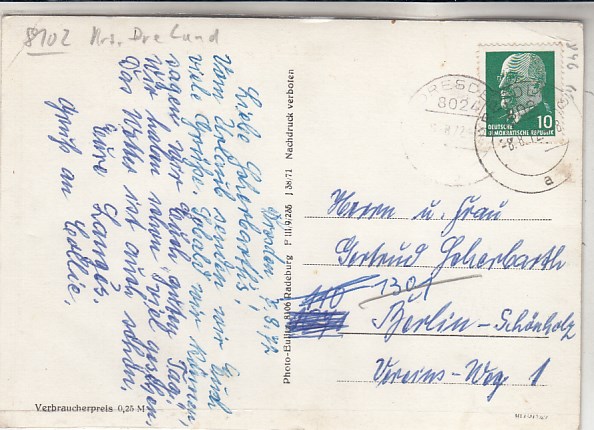 8102 Krs. Dre Land
Dresden 7.8.72
Liebe Goherbarth's!
Vom Urlaub senden wir Euch
viele Grüße. Sobald wir können,
sagen wir Euch "guten Tag".
Wir haben schon viel gesehen,
das Wetter ist auch schön.
Eure Langes.
Gruß an Collie.
Photo-Eulitz, 8106 Radeburg P III.9.286 J 38/71 Nachdruck verboten
DRESDEN
8024
-8.8.72
a
DEUTSCHE
DEMOKRATISCHE REPUBLIK
10
Herrn u. Frau
Gertrud Goherbarth
110
1301
Berlin-Schönholz
Vereins-Weg 1
Verbraucherpreis 0,25 M